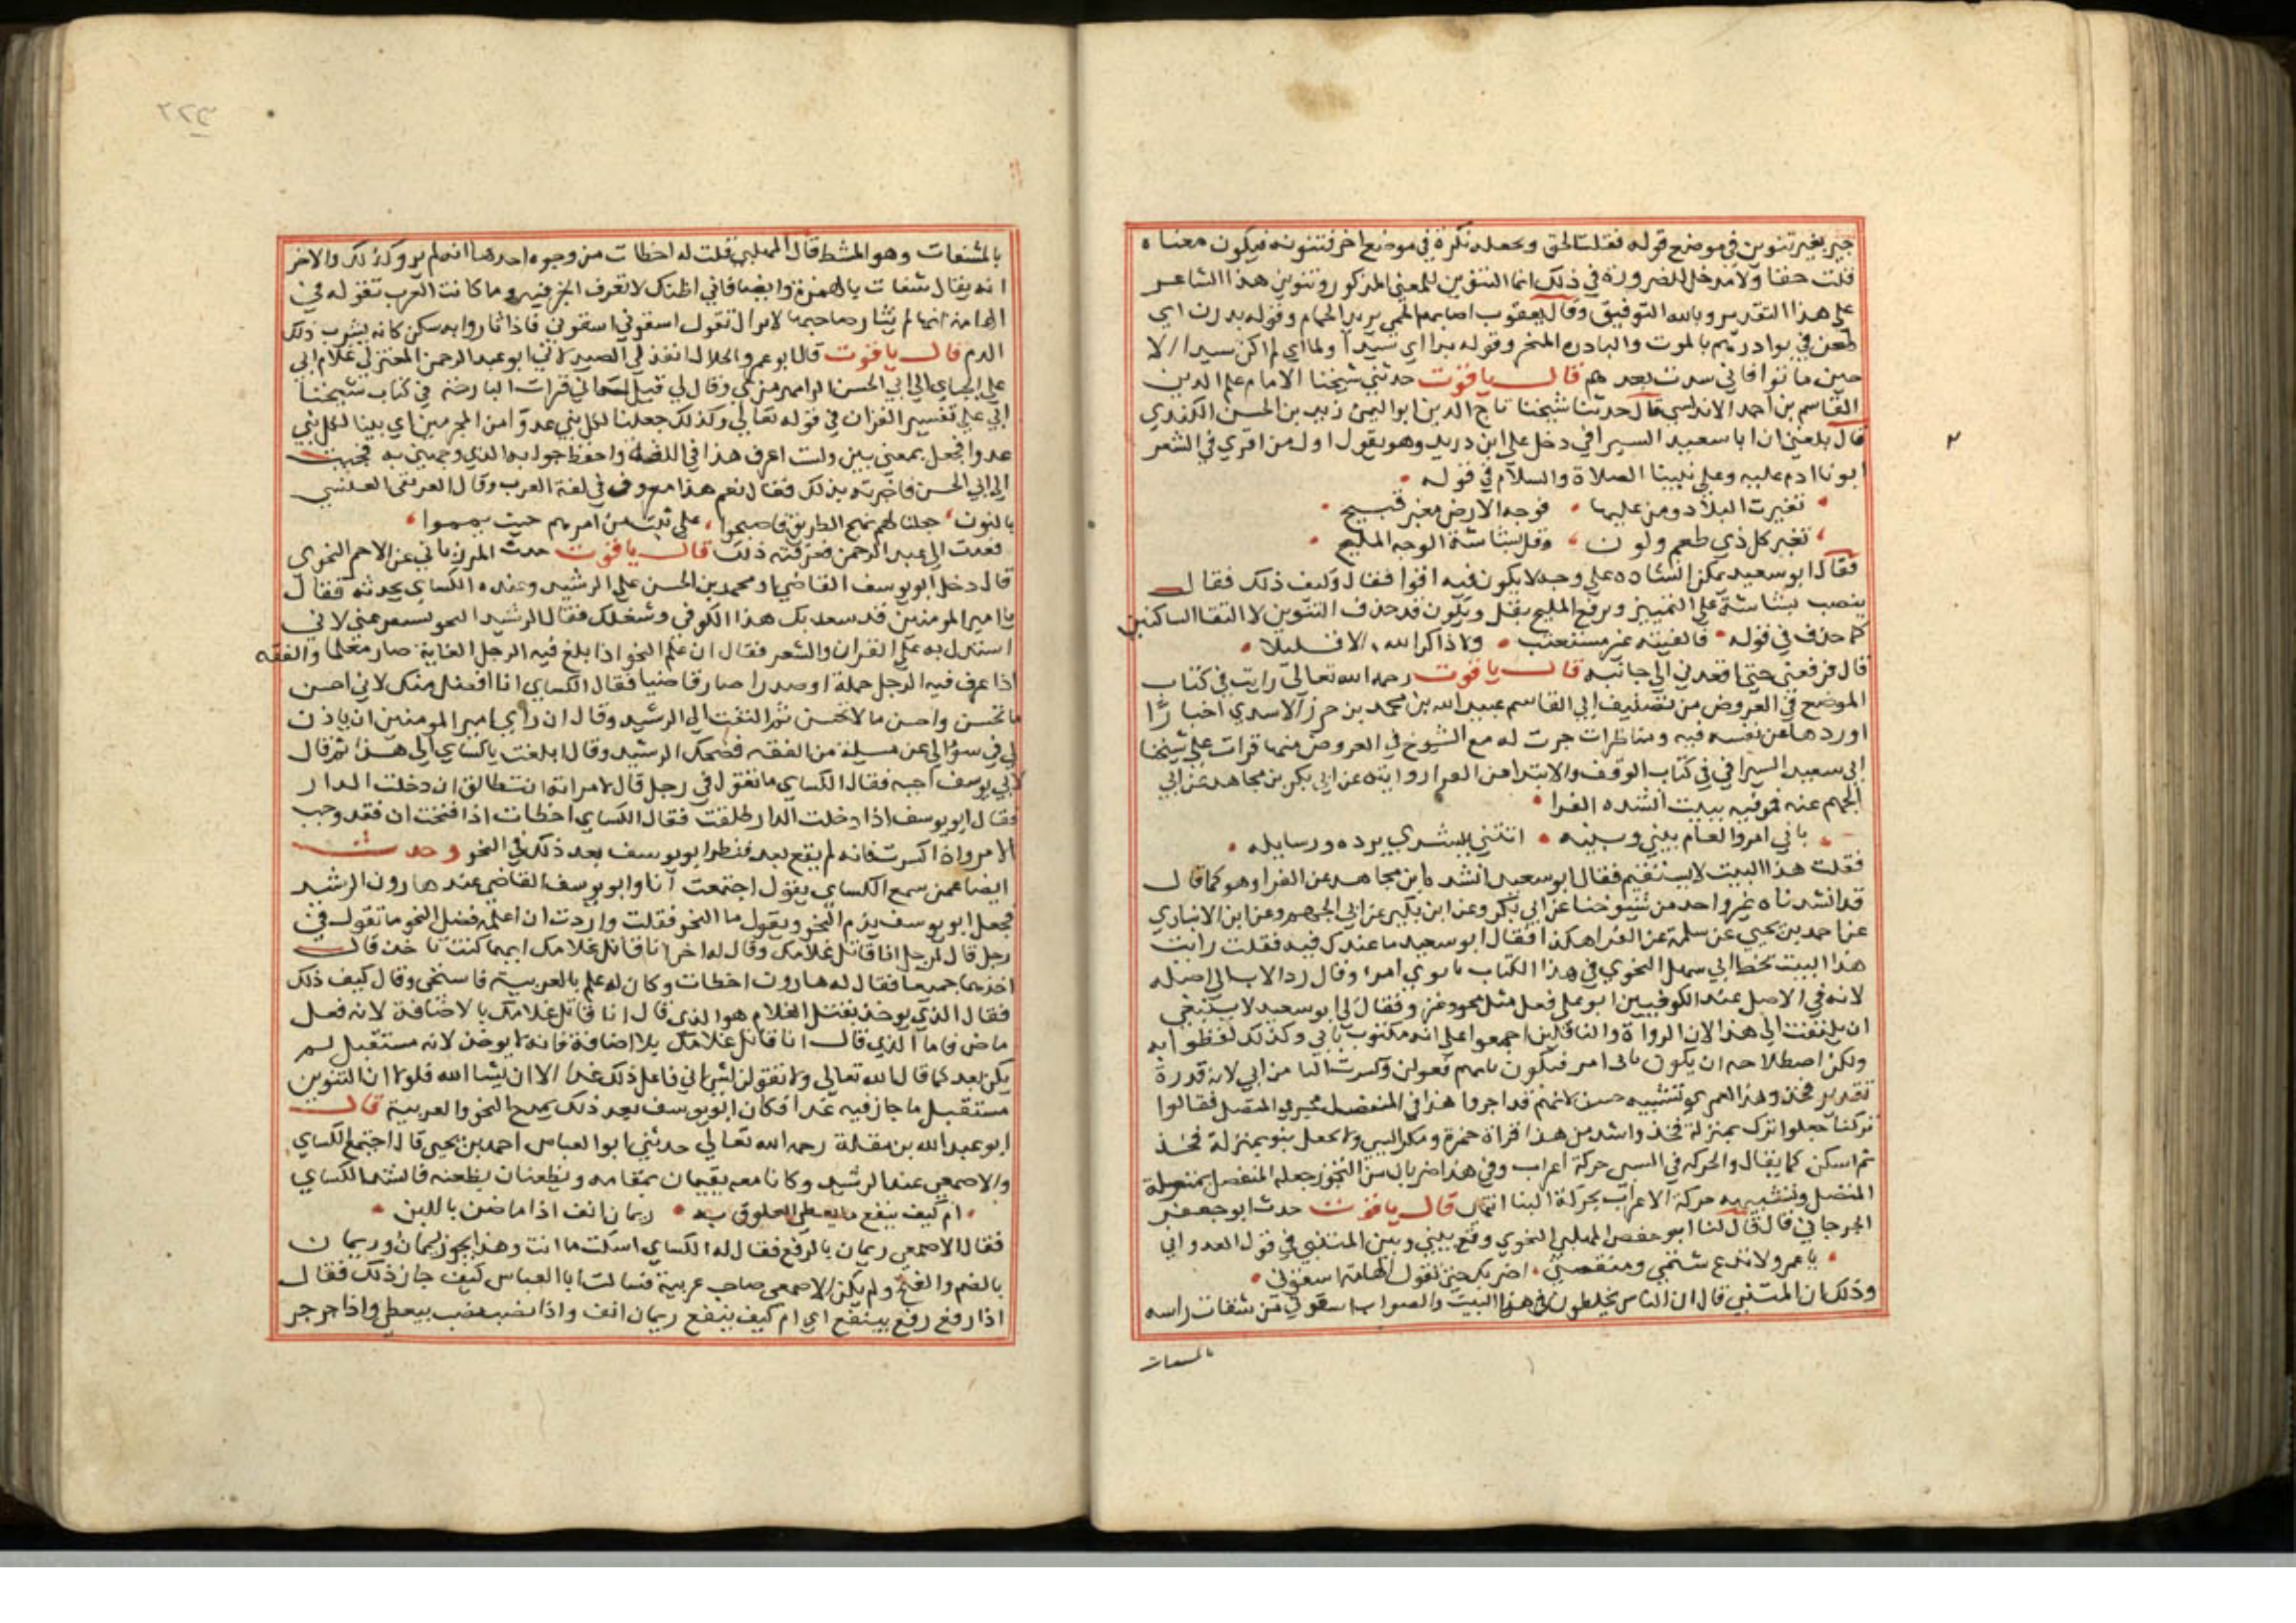 جير بغير تنوين في موضع قوله فقلت الحق ويجعله نكرة في موضع اخر فتنونه فيكون معناه
قلت حقا ولا مدخل للضرورة في ذلك انما التنوين للمعنى المذكور وتنوين هذا الشاعر
على هذا التقدير وبالله التوفيق وقال يعقوب اصابه الحمى يريد الحمام وقوله بدرن اي
طعن في بوادرهم بالموت والبادرة المنخر وقوله بدا اي سيدا ولما اي لم اكن سيدا الا
حين ماتوا فاني سدت بعدهم قال ياقوت حدثني شيخنا الامام علم الدين
القاسم بن احمد الاندلسي قال حدثنا شيخنا تاج الدين ابو اليمن زيد بن الحسن الكندي
قال بلغني ان ابا سعيد السيرافي دخل على ابن دريد وهو يقول اول من اقوي في الشعر
ابونا ادم عليه وعلى نبينا الصلاة والسلام في قوله
تغيرت البلاد ومن عليها فوجه الارض مغبر قبيح
تغير كل ذي طعم ولون وقل بشاشة الوجه المليح
فقال ابو سعيد يمكن انشاده على وجه لا يكون فيه اقوا فقال وكيف ذلك فقال
بنصب بشاشة على التمييز ويرفع المليح بقل ويكون قد حذف التنوين لالتقا الساكنين
كما حذف في قوله فالفيته غير مستعتب ولا ذاكر الله الا قليلا
قال فرفعني حتى اقعدني الى جانبه قال ياقوت رحمه الله تعالى رايت في كتاب
الموضح في العروض من تصنيف ابي القاسم عبيد الله بن محمد بن جرو الاسدي اخبارا
اوردها عن نفسه فيه ومناظرات جرت له مع الشيوخ في العروض منها قرات على شيخنا
ابي سعيد السيرافي في كتاب الوقف والابتدا عن الفرا روايته عن ابي بكر بن مجاهد عن ابي
الجهم عنه فمر فيه ببيت انشده الفرا
بابي امروا لعام بيني وبينه اتتني ببشري برده ورسايله
فقلت هذا البيت لا يستقيم فقال ابو سعيد انشدناه ابن مجاهد عن الفرا وهو كما قال
قد انشدناه غير واحد من شيوخنا عن ابي بكر وعن ابن بكير عن ابي الجهم وعن ابن الانباري
عن احمد بن يحيى عن سلمة عن الفرا هكذا فقال ابو سعيد ما عندك فيه فقلت رايت
هذا البيت بخط ابي سهل النحوي في هذا الكتاب وقال رد الاب الى اصله
لانه في الاصل عند الكوفيين ابو على فعل مثل نحو وغزو فقال لي ابو سعيد لا ينبغي
ان يلتفت الى هذا لان الرواة والناقلين اجمعوا على انه مكتوب بابي وكذلك لفظوا به
ولكن اصطلاحه ان يكون بابي امر فيكون بابمم فعولن وكسرت البا من ابي لانه قدره
تقدير فخذ وهذا لعمري تشبيه حسن لانهم قد اجروا هذا في المنفصل مجرى المتصل فقالوا
تركنا جعلوا ترك بمنزلة فخذ واشد من هذا قراة حمزة ومكر السيي ولا يجعل بنو بمنزلة فخذ
ثم اسكن كما يقال والحركة في السي حركة اعراب وفي هذا ضربان من التجوز جعله المنفصل بمنزلة
المتصل وتشبيهه حركة الاعراب بحركة البنا انتهى قال ياقوت حدث ابو جعفر
الجرجاني قال قال لنا ابو حفص المهلبي النحوي وقع بيني وبين المتنبي في قول العدواني
يا عمرو لا تدع شتمي ومنقصتي اضربك حتى تقول الهامة اسقوني
وذلك ان المتنبي قال ان الناس يخلطون في هذا البيت والصواب اسقوني من شقات راسه
بالمشقات
بالمشقات وهو المشط قال المهلبي قلت له اخطات من وجوه احدها انه لم يرو كذلك والاخر
انه يقال شقات بالهمزة وايضا فاني اظنك لا تعرف الخبر فيه وما كانت العرب تقوله في
الهامة انها لم يثار صاحبها لا يزال تقول اسقوني اسقوني فاذا ثاروا به سكن كانه يشرب ذلك
الدم قال ياقوت قال ابو عمرو الخلال انفذني الصيدلاني ابو عبد الرحمن المعتزلي غلام ابي
على الجباي الى ابي الحسن الرامهرمزي وقال لي قل له اني قرات البارحة في كتاب شيخنا
ابي علي تفسير القران في قوله تعالى وكذلك جعلنا لكل نبي عدوا من المجرمين اي بينا لكل نبي
عدوا فجعل بمعنى بين ولست اعرف هذا في اللغة واحفظ جوابه الذي وجهني به فجيت
الى ابي الحسن فاخبرته بذلك فقال نعم هذا معروف في لغة العرب وقال العريقي العلسي
بالنون جعلنا لهم نهج الطريق فاصبحوا على ثبت من امرهم حيث يمموا
فعدت الى عبد الرحمن فعرفته ذلك قال ياقوت حدث المرزباني عن الاحمر النحوي
قال دخل ابو يوسف القاضي او محمد بن الحسن على الرشيد وعنده الكساي يحدثه فقال
يا امير المومنين قد سعد بك هذا الكوفي وشغلك فقال الرشيد النحو يستفرغني لاني
استدل به على القران والشعر فقال ان علم النحو اذا بلغ فيه الرجل الغاية صار معلما والفقه
اذا عرف فيه الرجل جملة او صدرا صار قاضيا فقال الكساي انا افضل منك لاني احسن
ما تحسن واحسن ما لا تحسن ثم التفت الى الرشيد وقال ان راى امير المومنين ان ياذن
لي في سوالي عن مسلة من الفقه فضحك الرشيد وقال ابلغت ياكساي الى هذا ثم قال
لابي يوسف اجبه فقال الكساي ما تقول في رجل قال لامراته انت طالق ان دخلت الدار
فقال ابو يوسف اذا دخلت الدار طلقت فقال الكساي اخطات اذا فتحت ان فقد وجب
الامر واذا كسرت فانه لم يقع بعد فنظر ابو يوسف بعد ذلك في النحو وحدث
ايضا عمن سمع الكساي يقول اجتمعت انا وابو يوسف القاضي عند هارون الرشيد
فجعل ابو يوسف يذم النحو ويقول ما النحو فقلت واردت ان اعلمه فضل النحو ما تقول في
رجل قال لرجل انا قاتل غلامك وقال له اخر انا قاتل غلامك ايهما كنت تاخذ قال
اخذهما جميعا فقال له هارون اخطات وكان له علم بالعربية فاستحى وقال كيف ذلك
فقال الذي يوخذ بقتل الغلام هو الذي قال انا قاتل غلامك بالاضافة لانه فعل
ماض فاما الذي قال انا قاتل غلامك بلا اضافة فانه لا يوخذ لانه مستقبل لم
يكن بعد كما قال الله تعالى ولا تقولن لشي اني فاعل ذلك غدا الا ان يشا الله فلولا ان التنوين
مستقبل ما جاز فيه غدا فكان ابو يوسف بعد ذلك يمدح النحو والعربية قال
ابو عبد الله بن مقلة رحمه الله تعالى حدثني ابو العباس احمد بن يحيى قال اجتمع الكساي
والاصمعي عند الرشيد وكانا معه يقيمان بمقامه ويظعنان بظعنه فانشد الكساي
ام كيف ينفع ما يعطى العلوق به ريمان انف اذا ما ضن باللبن
فقال الاصمعي ريمان بالرفع فقال له الكساي اسكت ما انت وهذا يجوز ريمان وريمان
بالضم والفتح ولم يكن الاصمعي صاحب عربية فسالت ابا العباس كيف جاز ذلك فقال
اذا رفع رفع بينفع اي ام كيف ينفع ريمان انف واذا نصب نصب بيعطى واذا جر جر